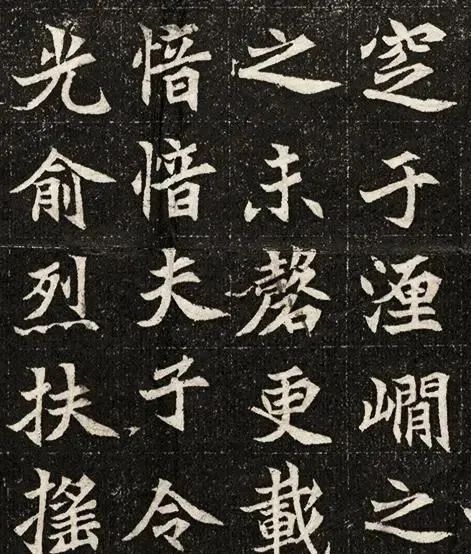 窆于瀍澗之
之未磬更載
愔愔夫子令
光俞烈扶搖